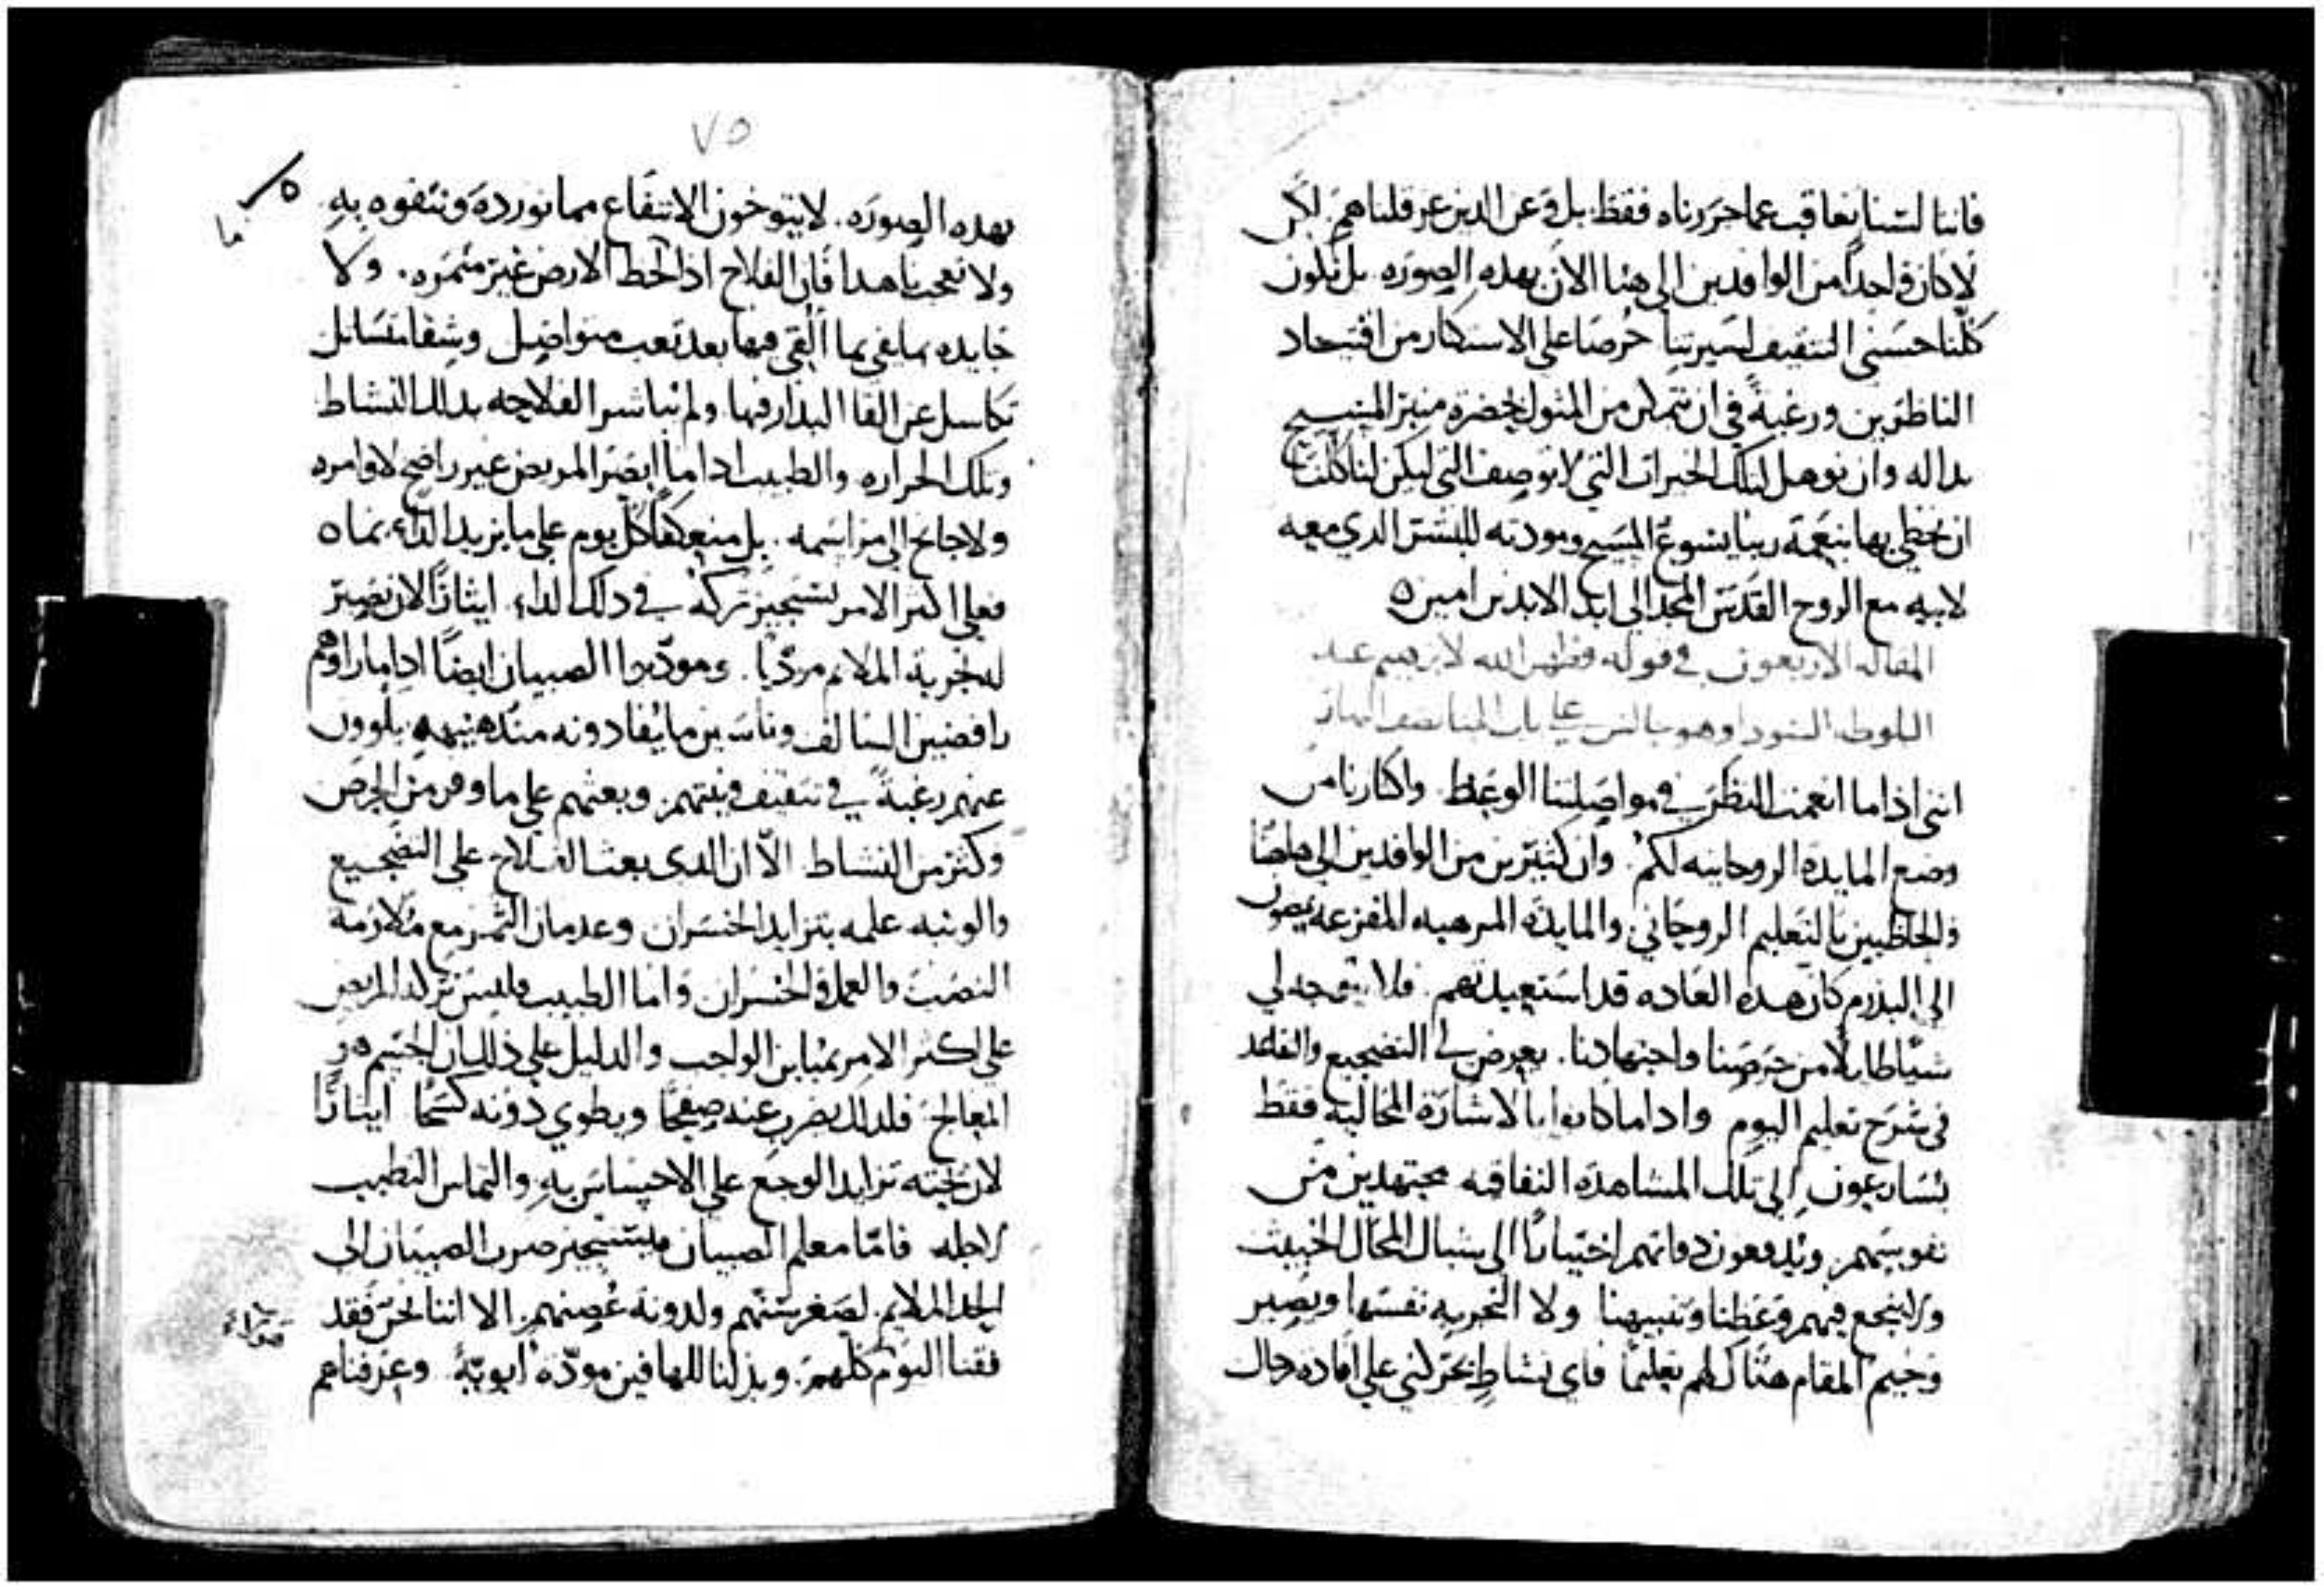 فاننا لسنا نعاقب عما حررناه فقط بل وعن الدين عرقلناهم لكن
لا كان واحدا من الوافدين الى هنا الان بهده الصوره بل نكون
كلنا حسني التثقيف لسيرتنا حرصا على الاستكتار من
الناظرين ورغبة في ان نتمكن من المثول لحضرة منبر المسيح
بداله وان نوهل لتلك الخيرات التي لا توصف التي ليكن لنا كلنا
ان نحظى بها بنعمة ربنا يسوع المسيح ومودته للبشر الدي معه
لابيه مع الروح القدس المجد الى ابد الابدين امين
المقاله الاربعون في قوله وظهر الله لابرهيم عند
البلوطه وهو جالس على باب نصف النهار
انني اذا ما انعمت النظر في مواصلتنا الوعظ واكثارنا من
وضع المايدة الروحانيه لكم وان كثيرين من الوافدين الى هاهنا
والحاظيين بالتعليم الروحاني والمايدة المرهبه المفزعه يمضون
الى كان هده العاده قد استعبدتهم فلا يتوجه لي
من حرصنا واجتهادنا يعرض لي التضجيع والتقاعد
في شرح تعليم اليوم وادا ما كانوا بالاشارة المحاليه فقط
يسارعون الى تلك المشاهدة النفاقيه مجتهدين من
نفوسهم ويدفعون دواتهم اختيارا الى شباك المحال الخبيث
ولا ينجع فيهم وعظنا وتنبيهنا ولا التجربه نفسها ويصير
المقام هناك لهم تعليما فاي نشاط يحركني على افادة رجال
٧٥
بهده الصورة لا يتوخون الانتفاع مما نورده ونتفوه به
ولا تعجبنا هدا فان الفلاح اذا لحظ الارض غير مثمره ولا
بما القي فيها بعد تعب متواصل وشقا
تكاسل عن القا البدار فيها ولم يباشر الفلاحه بدلك النشاط
وتلك الحراره والطبيب ادا ما ابصر المريض غير راضخ لاوامره
ولا جانح الى مراسمه بل منعكفا كل يوم على ما يزيد الداء
فعلى اكثر الامر يستجيز تركه في دلك الداء ايثارا لان تصير
له تجربة الملايم مردبا ومودبوا الصبيان ايضا ادا ما راوهم
رافضين السالف وناسين ما يفادونه يلوون
عنهم رغبة في تثقيف وبعثهم على ما وفر من الحرص
وكثر من النشاط الا ان الدي بعث الفلاح على التضجيع
علمه بتزايد الخسران وعدمان الثمر مع ملازمة
النصب والعمل والخسران واما الطبيب فليس ترك المريض
على اكثر الامر بمباين الواجب والدليل على ذلك ان الجسم هو
المعالج فلدلك يضرب عنه صفحا ويطوي دونه كشحا ايثارا
لان تزايد الوجع على الاحساس به والتماس التطبيب
لاجله فاما معلم الصبيان فيستجيز ضرب الصبيان الى
الحد الملايم لصغر سنهم ولدونة غصنهم الا اننا نحن فقد
فقنا اليوم كلهم وبذلنا للهافين مودة ابوية وعرفناهم